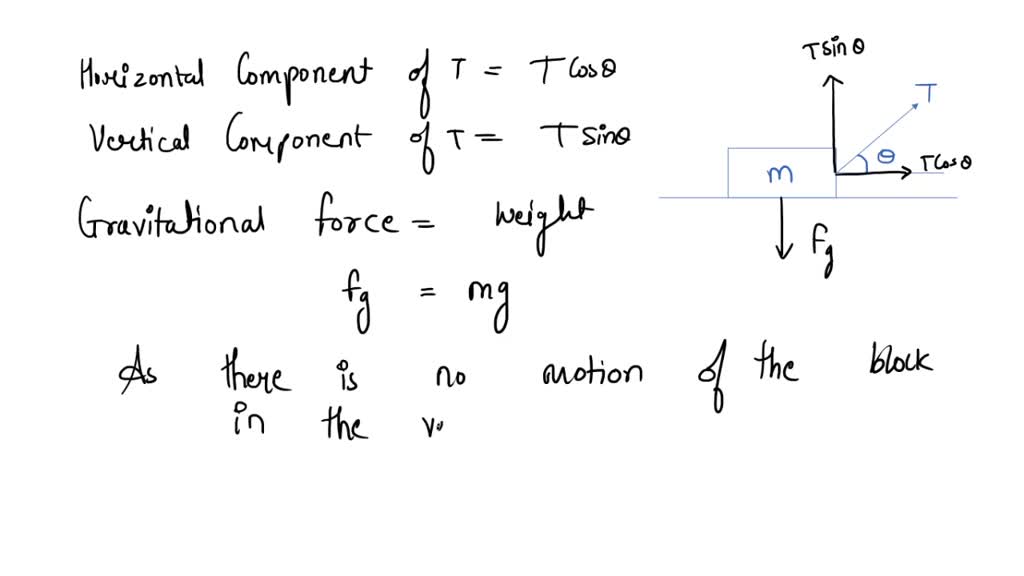 Horizontal Component of T = T Cosθ
Vertical Component of T = T Sinθ
Gravitational force = Weight
fg = mg
As there is no motion of the block
in the
T Sin θ
T
θ
T Cos θ
m
Fg